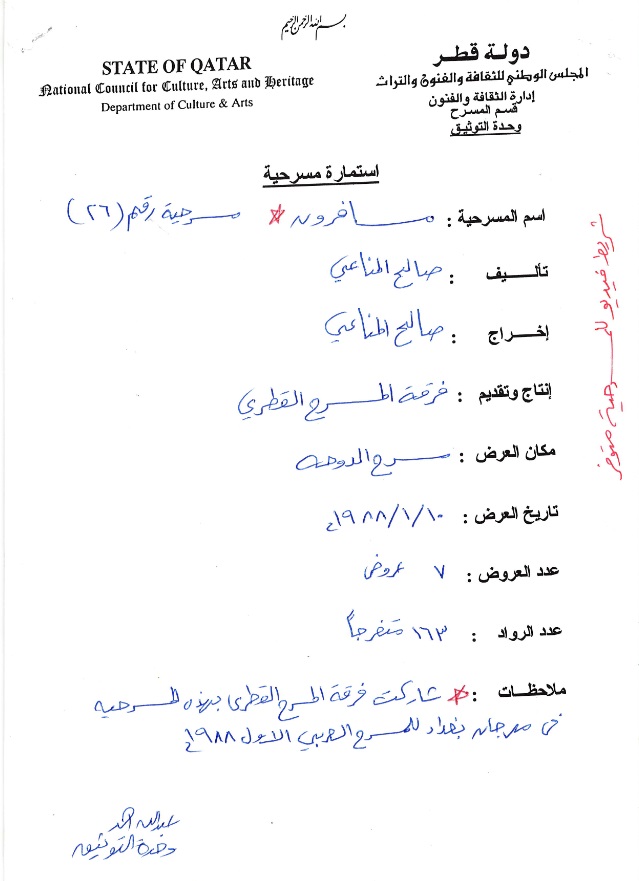 بسم الله الرحمن الرحيم
STATE OF QATAR
National Council for Culture, Arts and Heritage
Department of Culture & Arts
دولة قطر
المجلس الوطني للثقافة والفنون والتراث
إدارة الثقافة والفنون
قسم المسرح
وحدة التوثيق
استمارة مسرحية
اسم المسرحية : مسافرون * مسرحية رقم (٢٦)
تأليف : صالح المناعي
إخراج : صالح المناعي
إنتاج وتقديم : فرقة المسرح القطري
مكان العرض : مسرح الدوحة
تاريخ العرض : ١٩٨٨/١/١٠م
عدد العروض : ٧ عروض
عدد الرواد : ١٦٣ متفرجاً
ملاحظات : * شاركت فرقة المسرح القطري بهذه المسرحيه
في مهرجان بغداد للمسرح العربي الاول ١٩٨٨م
عبدالله احمد
وحدة التوثيق
شريط فيديو للمسرحية متوفر